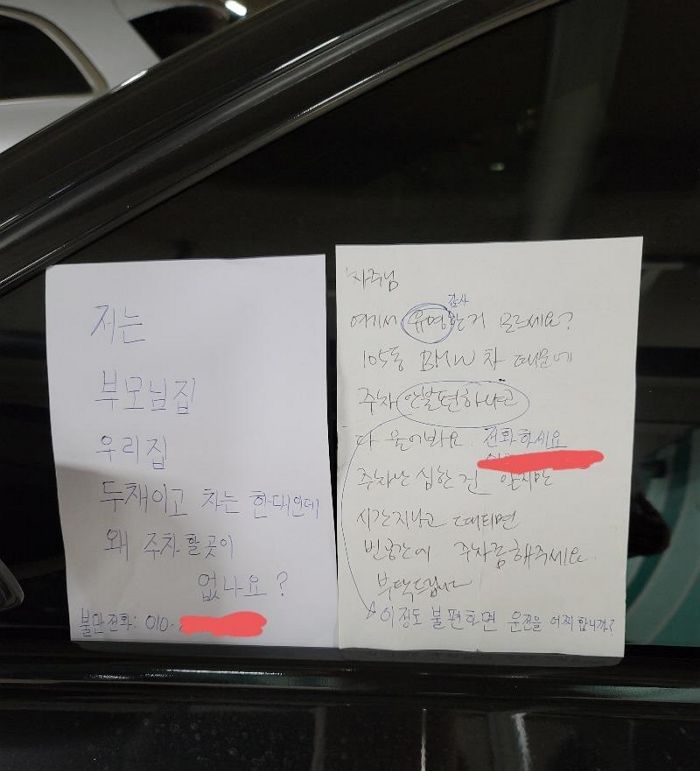 저는
부모님집
우리집
두채이고 차는 한대인데
왜 주차할곳이
없나요?
불만전화: 010-
차주님
감사
여기서 유명한거 모르세요?
105동 BMW 차 때문에
주차 안불편하냐고
다 물어봐요. 전화하세요
주차난 심한건 알지만
시간지나고 때되면
빈공간에 주차좀해주세요.
부탁드립니다
이정도 불편하면 운전을 어찌합니까?